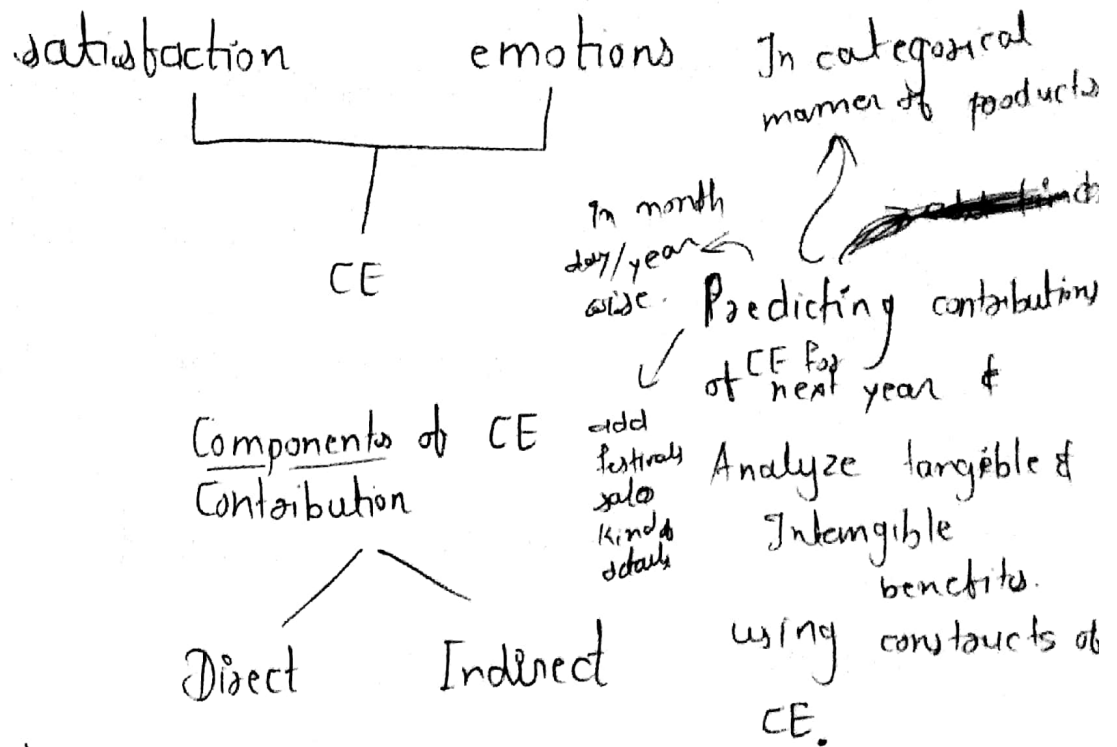 satisfaction emotions
CE
Components of CE
Contribution
Direct Indirect
In categorical
manner of products
In month
day/year
wise.
Predicting contributions
of CE for
next year &
add
festivals
sales
kind of
details
Analyze tangible &
Intangible
benefits.
using constructs of
CE.